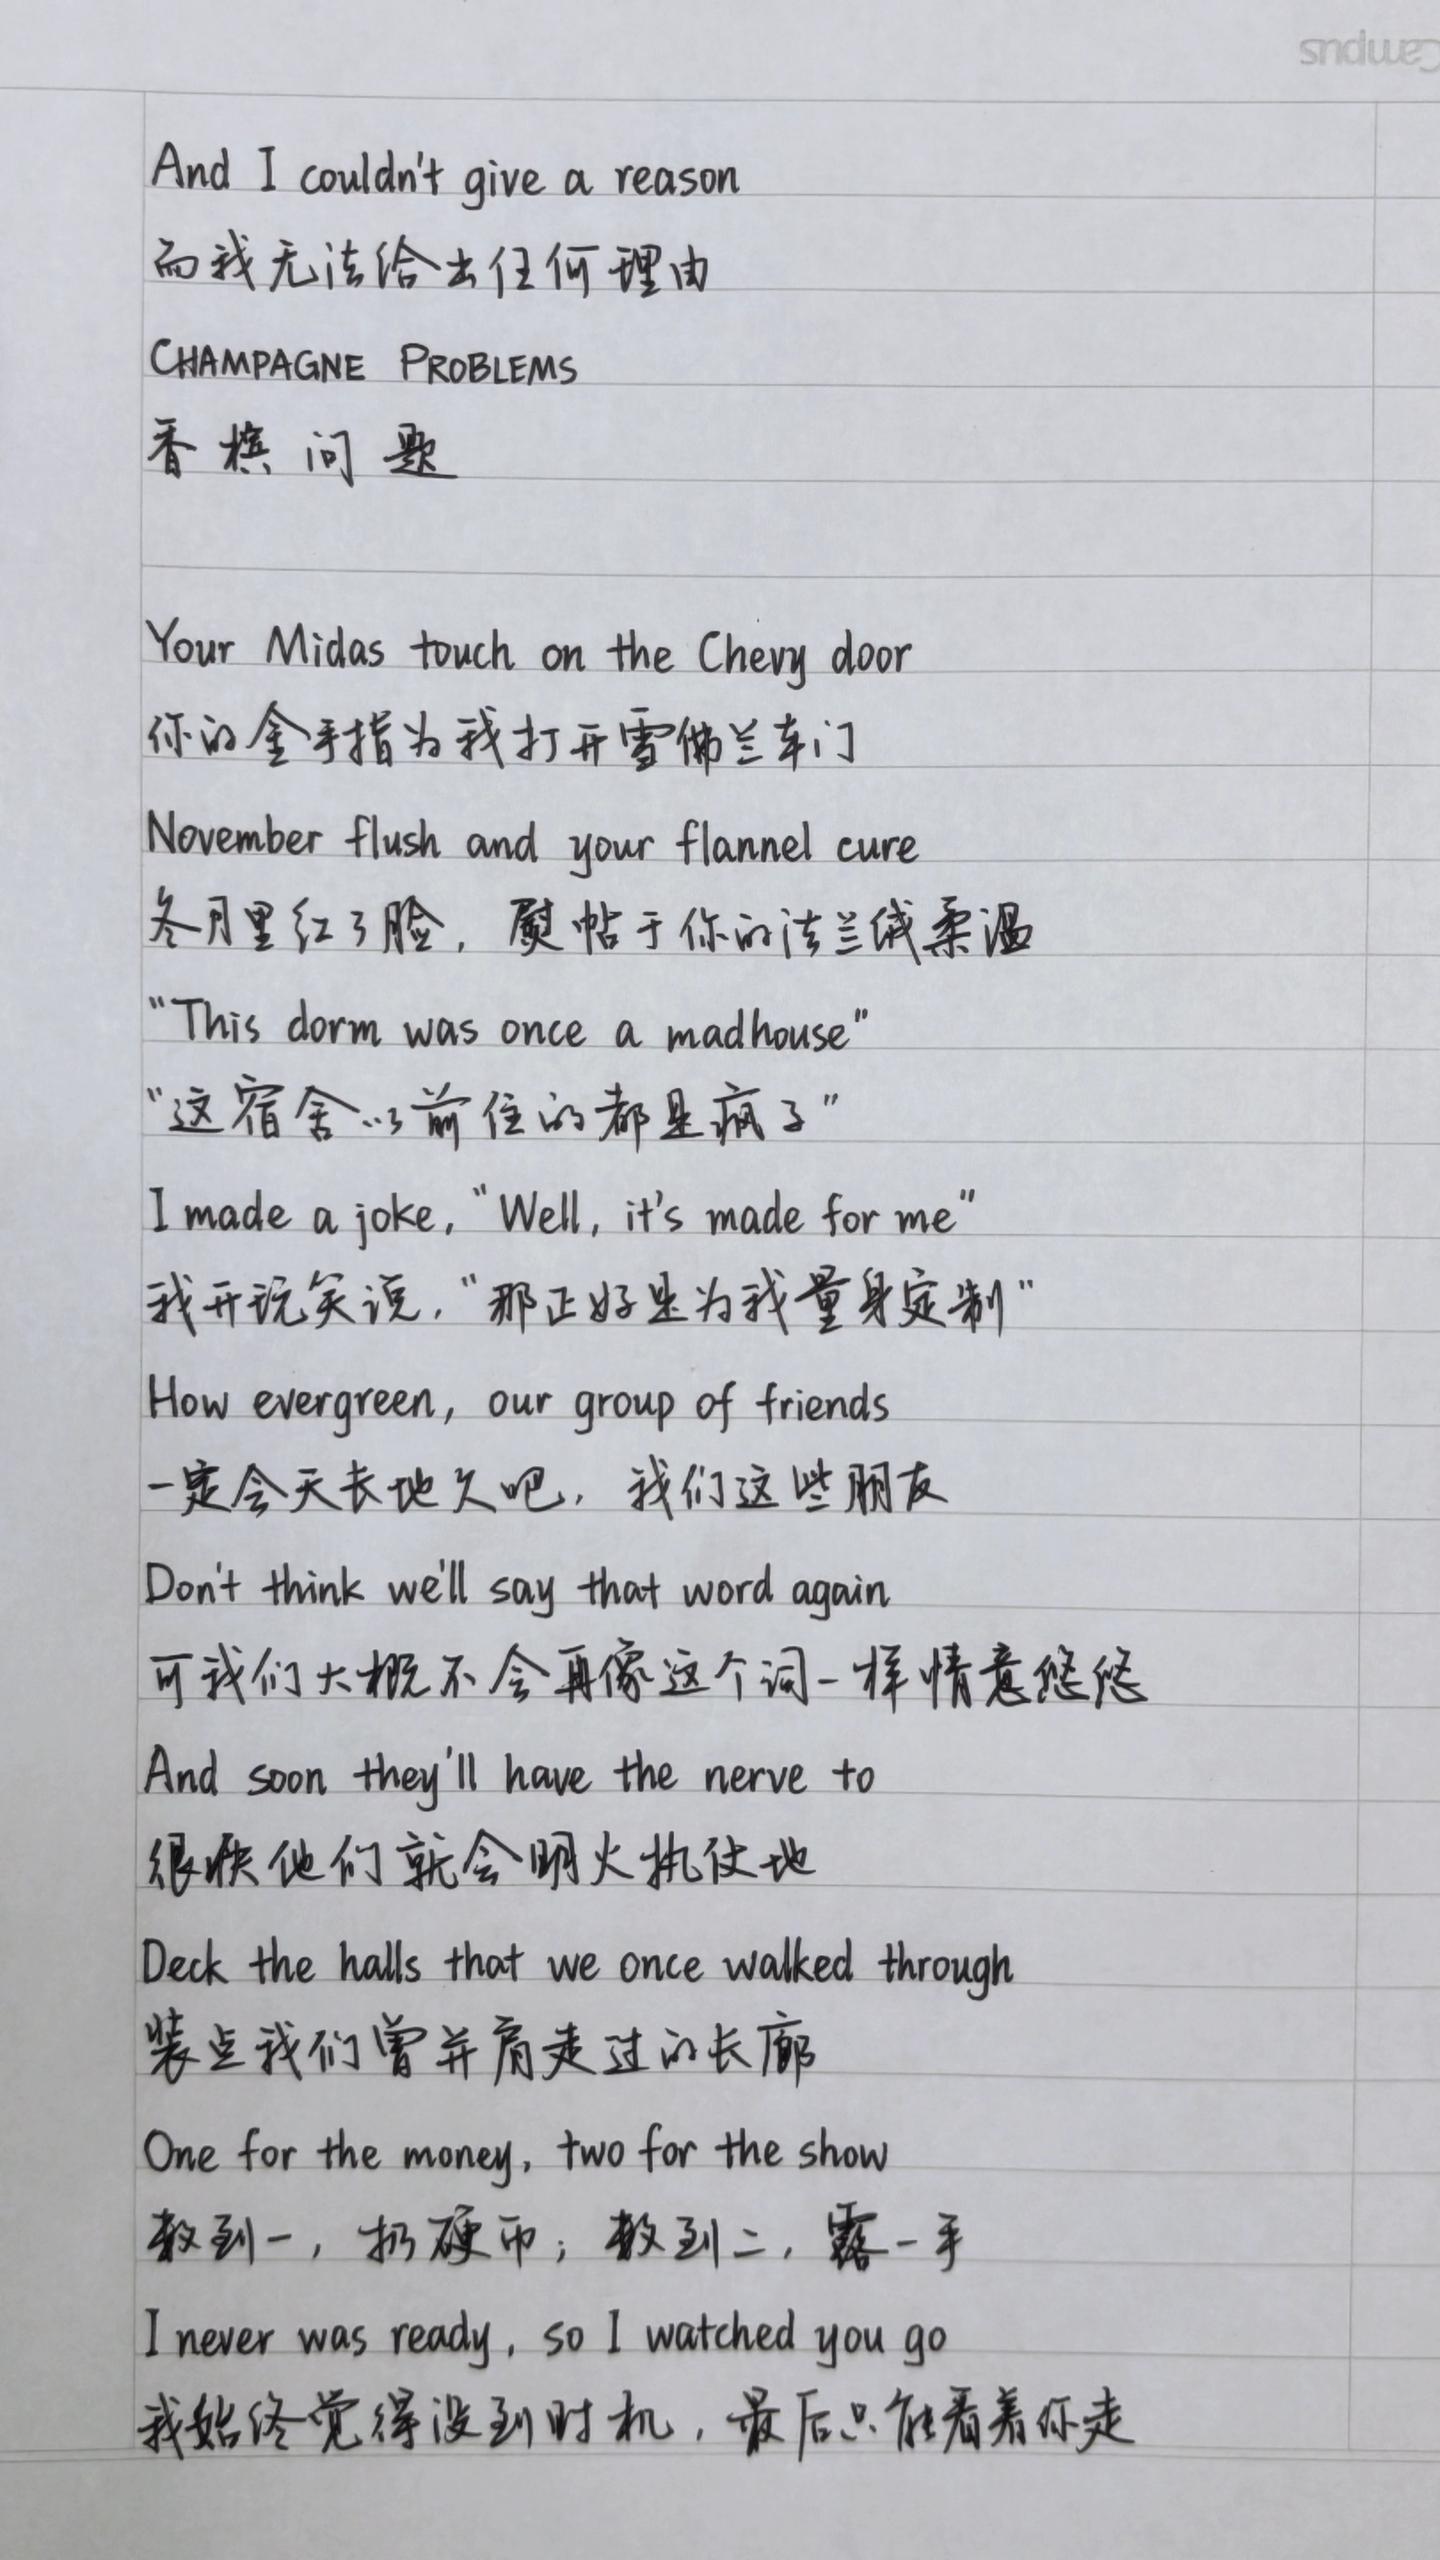 Campus
And I couldn't give a reason
而我无法给出任何理由
CHAMPAGNE PROBLEMS
香槟问题
Your Midas touch on the Chevy door
你的金手指为我打开雪佛兰车门
November flush and your flannel cure
冬月里红了脸，熨帖于你的法兰绒柔温
"This dorm was once a madhouse"
"这宿舍以前住的都是疯子"
I made a joke, "Well, it's made for me"
我开玩笑说，"那正好是为我量身定制"
How evergreen, our group of friends
一定会天长地久吧，我们这些朋友
Don't think we'll say that word again
可我们大概不会再像这个词一样情意悠悠
And soon they'll have the nerve to
很快他们就会明火执仗地
Deck the halls that we once walked through
装点我们曾并肩走过的长廊
One for the money, two for the show
数到一，扔硬币；数到二，露一手
I never was ready, so I watched you go
我始终觉得没到时机，最后只能看着你走